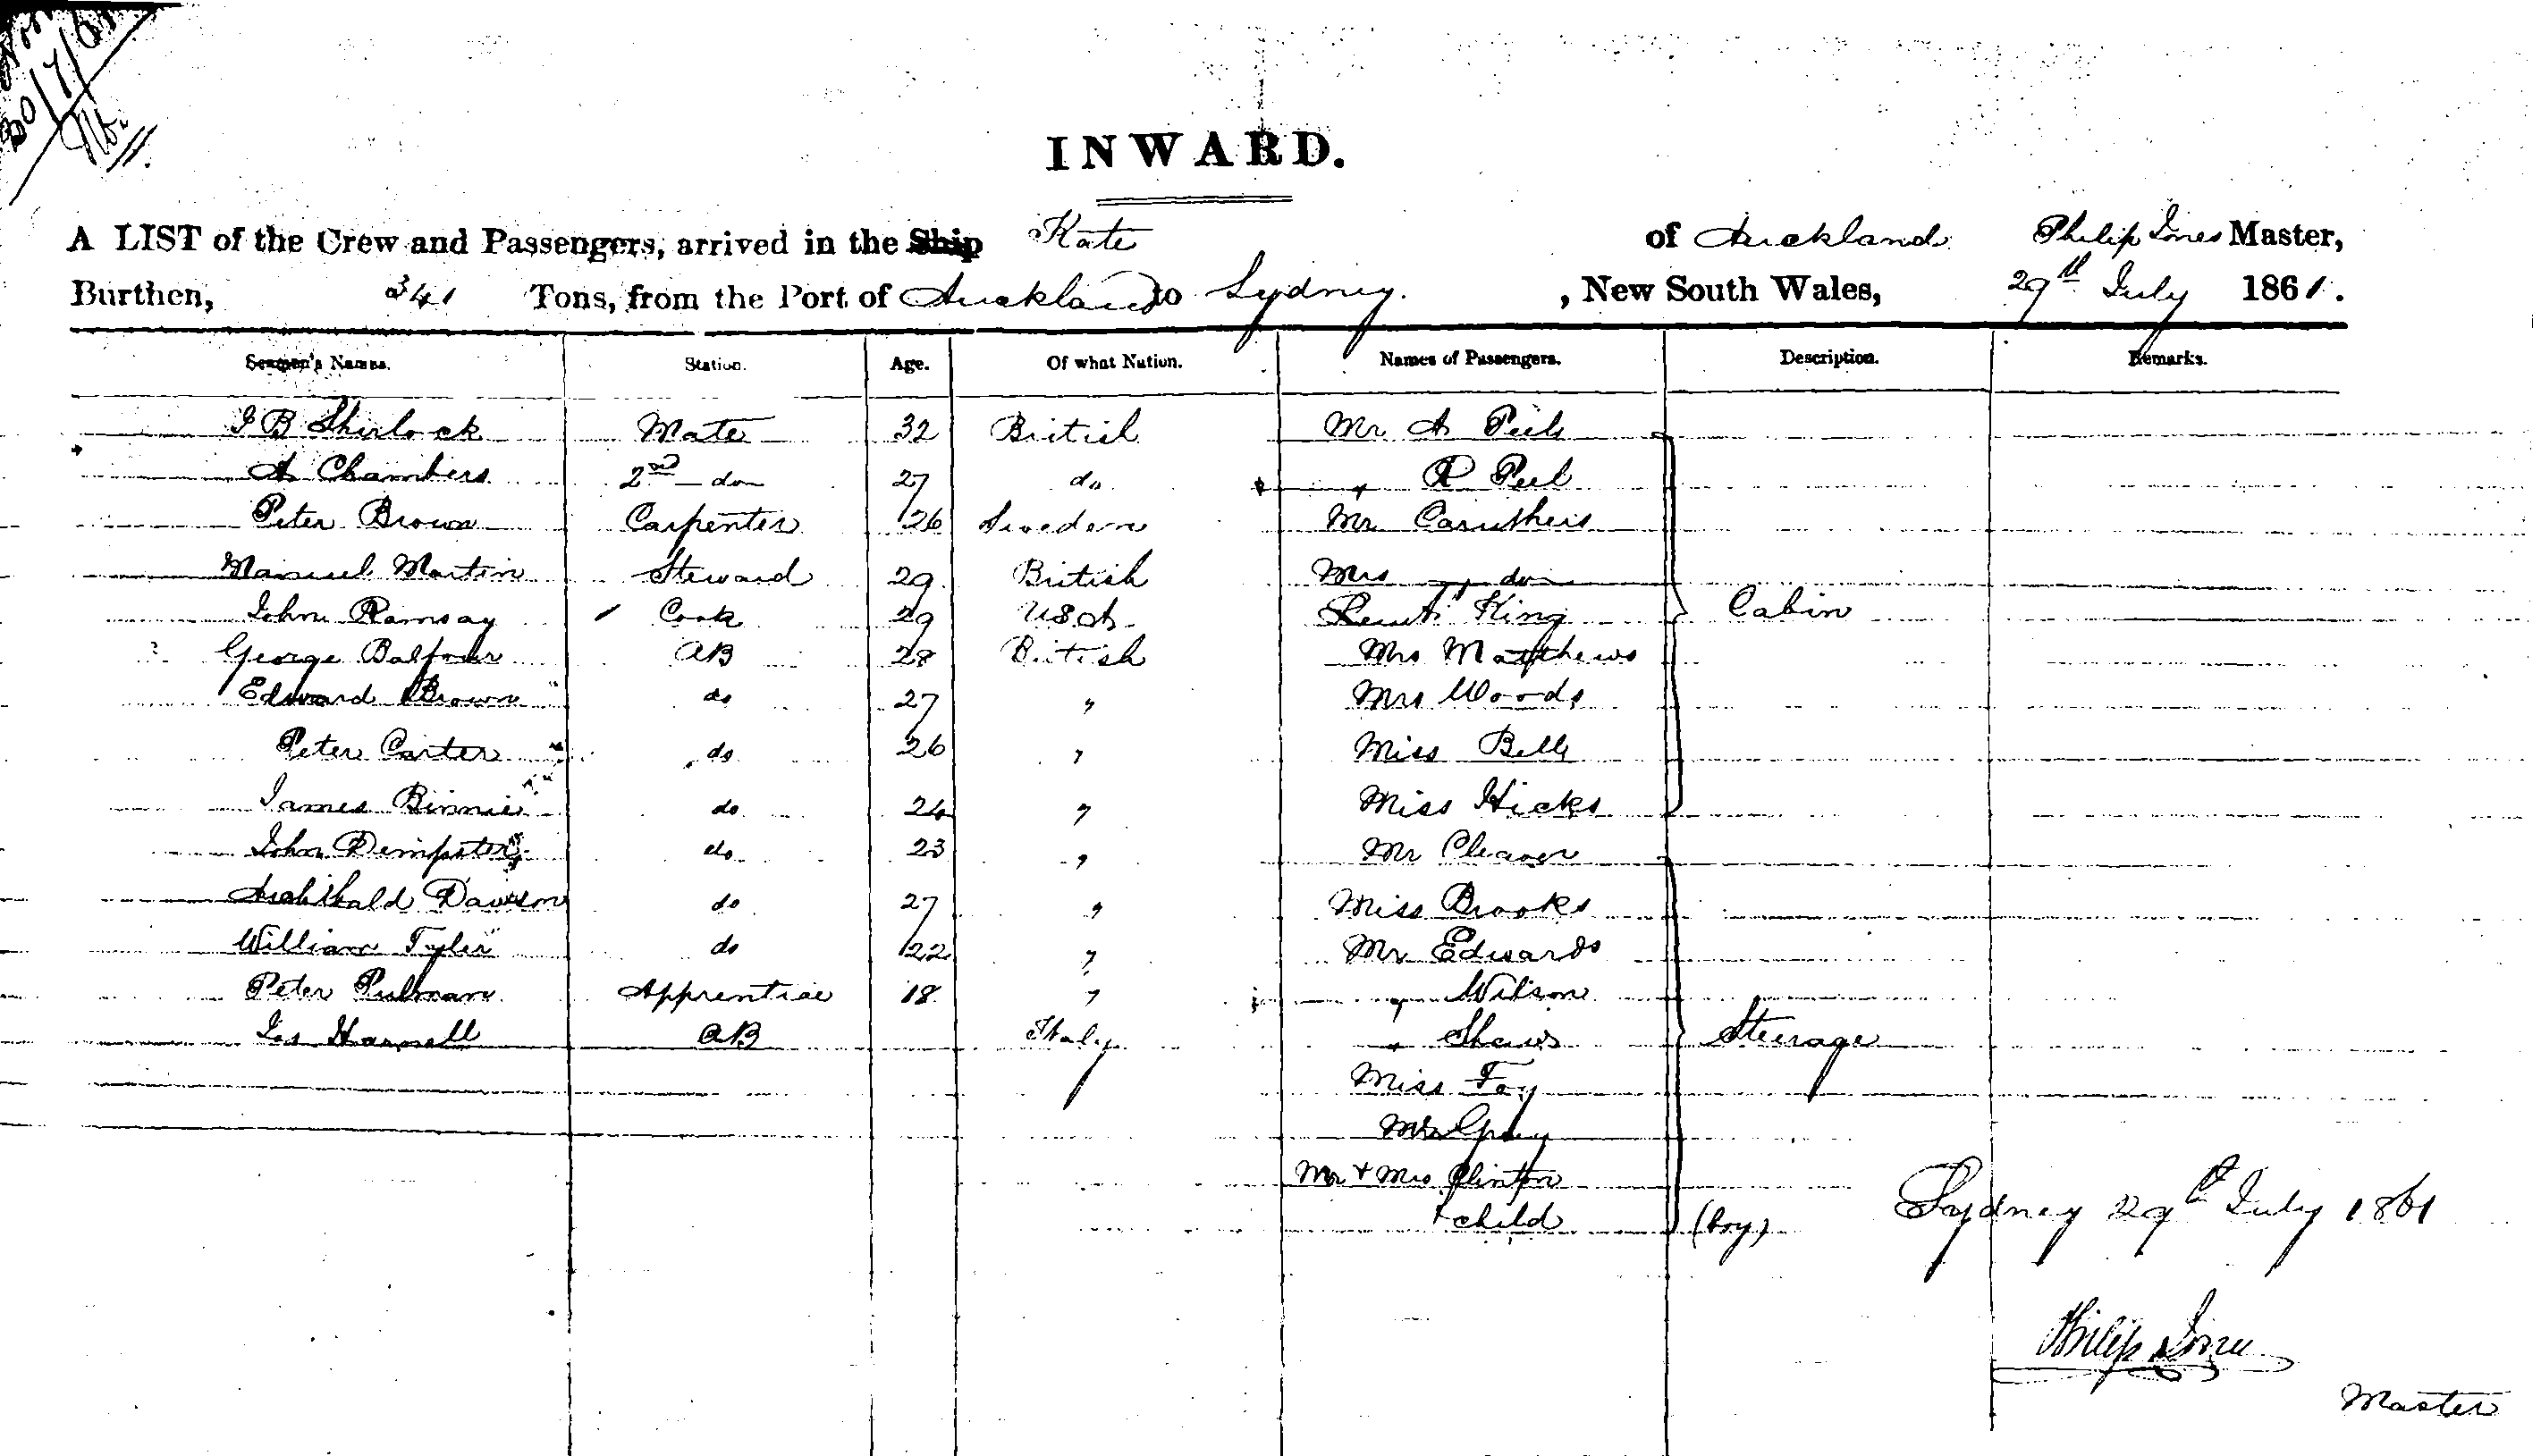 30/7/61
INWARD.
A LIST of the Crew and Passengers, arrived in the Ship Kate of Auckland Philip Jones Master,
Burthen, 341 Tons, from the Port of Auckland to Sydney. , New South Wales, 29th July 1861.
Seamen's Names. Station. Age. Of what Nation. Names of Passengers. Description. Remarks.
J B Shirlock Mate 32 British Mr A Peil
A Chambers 2nd do 27 do " R Peel
Peter Brown Carpenter 26 Sweden Mr Caruthers
Manuel Martin Steward 29 British Mrs do
John Ramsay Cook 29 USA Lieut King Cabin
George Balfour AB 28 British Mrs Matthews
Edward Brown do 27 " Mrs Woods
Peter Carter do 26 " Miss Bell
James Binnie do 24 " Miss Hicks
John Dempster do 23 " Mr Cleaver
Archibald Dawson do 27 " Miss Brooks
William Tyler do 22 " Mr Edwards
Peter Pulman Apprentice 18 " " Wilson
Jas Harnell AB Italy " Shaws Steerage
Miss Foy
Mrs Gray
Mr + Mrs Clinton
+ child (boy)
Sydney 29th July 1861
Philip Jones
Master